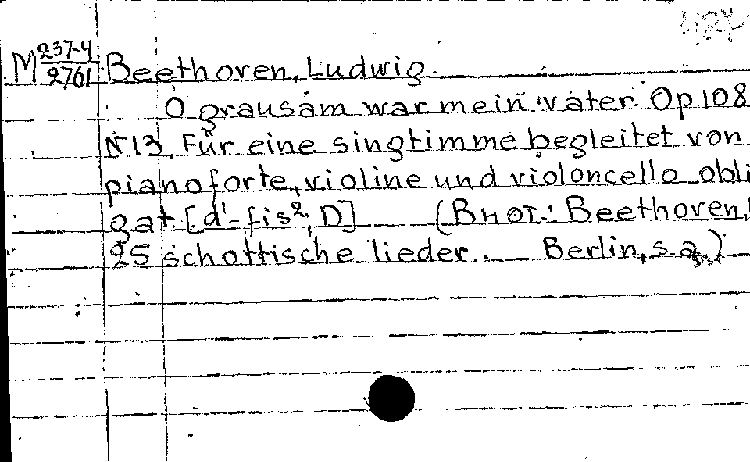 М 237-4/2761 Beethoven, Ludwig.
O grausam war mein vater Op 108
N 13. Für eine singtimme begleitet von
pianoforte, violine und violoncello obli
gat [d¹-fis², D] (В нот.: Beethoven,
25 schottische lieder. Berlin, s.a.)